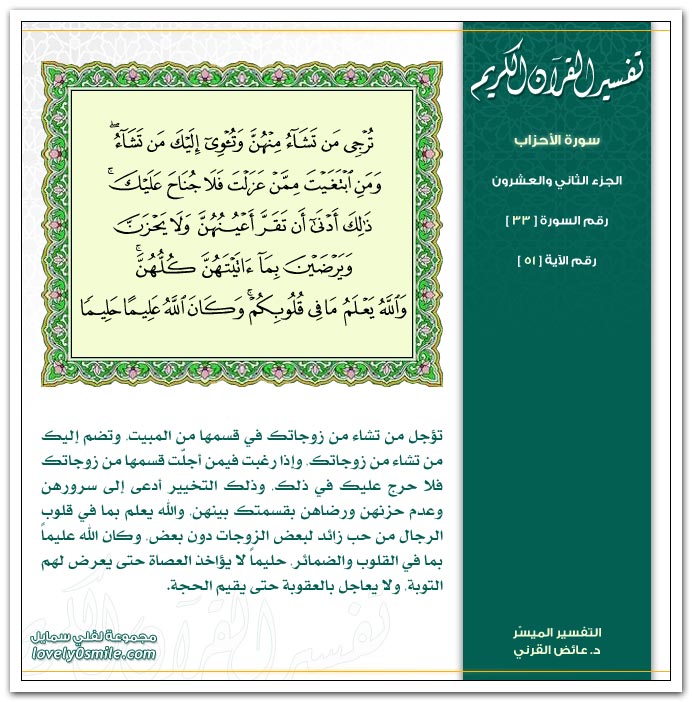 تفسير القرآن الكريم
سورة الأحزاب
الجزء الثاني والعشرون
رقم السورة [ ٣٣ ]
رقم الآية [ ٥١ ]
تُرْجِى مَن تَشَآءُ مِنْهُنَّ وَتُـْٔوِىٓ إِلَيْكَ مَن تَشَآءُ ۖ
وَمَنِ ٱبْتَغَيْتَ مِمَّنْ عَزَلْتَ فَلَا جُنَاحَ عَلَيْكَ ۚ
ذَٰلِكَ أَدْنَىٰٓ أَن تَقَرَّ أَعْيُنُهُنَّ وَلَا يَحْزَنَّ
وَيَرْضَيْنَ بِمَآ ءَاتَيْتَهُنَّ كُلُّهُنَّ ۚ
وَٱللَّهُ يَعْلَمُ مَا فِى قُلُوبِكُمْ ۚ وَكَانَ ٱللَّهُ عَلِيمًا حَلِيمًا
تؤجل من تشاء من زوجاتك في قسمها من المبيت، وتضم إليك
من تشاء من زوجاتك، وإذا رغبت فيمن أجلّت قسمها من زوجاتك
فلا حرج عليك في ذلك، وذلك التخيير أدعى إلى سرورهن
وعدم حزنهن ورضاهن بقسمتك بينهن، والله يعلم بما في قلوب
الرجال من حب زائد لبعض الزوجات دون بعض، وكان الله عليماً
بما في القلوب والضمائر، حليماً لا يؤاخذ العصاة حتى يعرض لهم
التوبة، ولا يعاجل بالعقوبة حتى يقيم الحجة.
التفسير الميسّر
د. عائض القرني
مجموعة لفلي سمايل
lovely0smile.com
تفسير القرآن الكريم